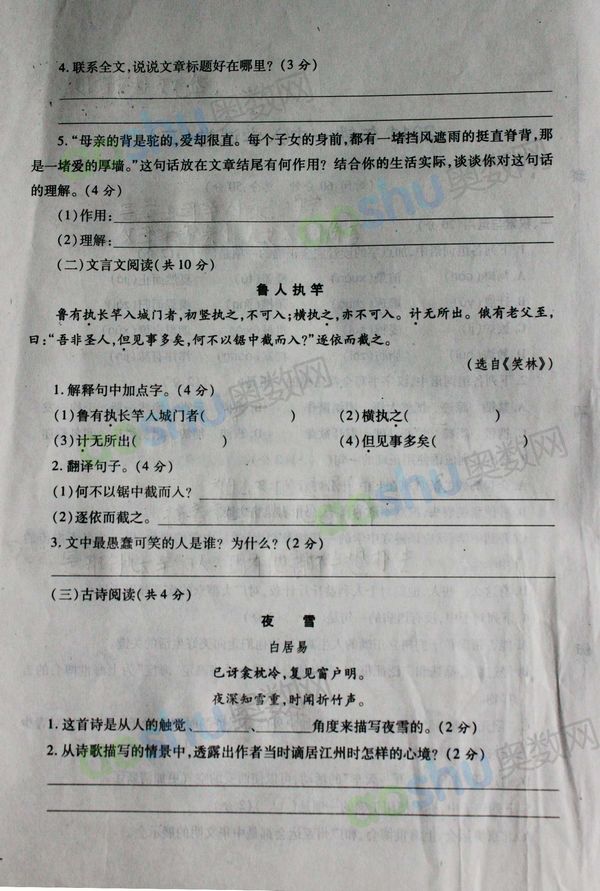 4. 联系全文，说说文章标题好在哪里？（3 分）
5. “母亲的背是驼的，爱却很直。每个子女的身前，都有一堵挡风遮雨的挺直脊背，那
是一堵爱的厚墙。”这句话放在文章结尾有何作用？结合你的生活实际，谈谈你对这句话
的理解。（4 分）
（1）作用：
（2）理解：
（二）文言文阅读（共 10 分）
鲁人执竿
鲁有执长竿入城门者，初竖执之，不可入；横执之，亦不可入。计无所出。俄有老父至，
曰：“吾非圣人，但见事多矣，何不以锯中截而入？”遂依而截之。
（选自《笑林》）
1. 解释句中加点字。（4 分）
（1）鲁有执长竿入城门者（ ） （2）横执之（ ）
（3）计无所出（ ） （4）但见事多矣（ ）
2. 翻译句子。（4 分）
（1）何不以锯中截而入？
（2）遂依而截之。
3. 文中最愚蠢可笑的人是谁？为什么？（2 分）
（三）古诗阅读（共 4 分）
夜 雪
白居易
已讶衾枕冷，复见窗户明。
夜深知雪重，时闻折竹声。
1. 这首诗是从人的触觉、 、 角度来描写夜雪的。（2 分）
2. 从诗歌描写的情景中，透露出作者当时谪居江州时怎样的心境？（2 分）
aoshu奥数网
aoshu奥数网
aoshu奥数网
aoshu奥数网
aoshu奥数网